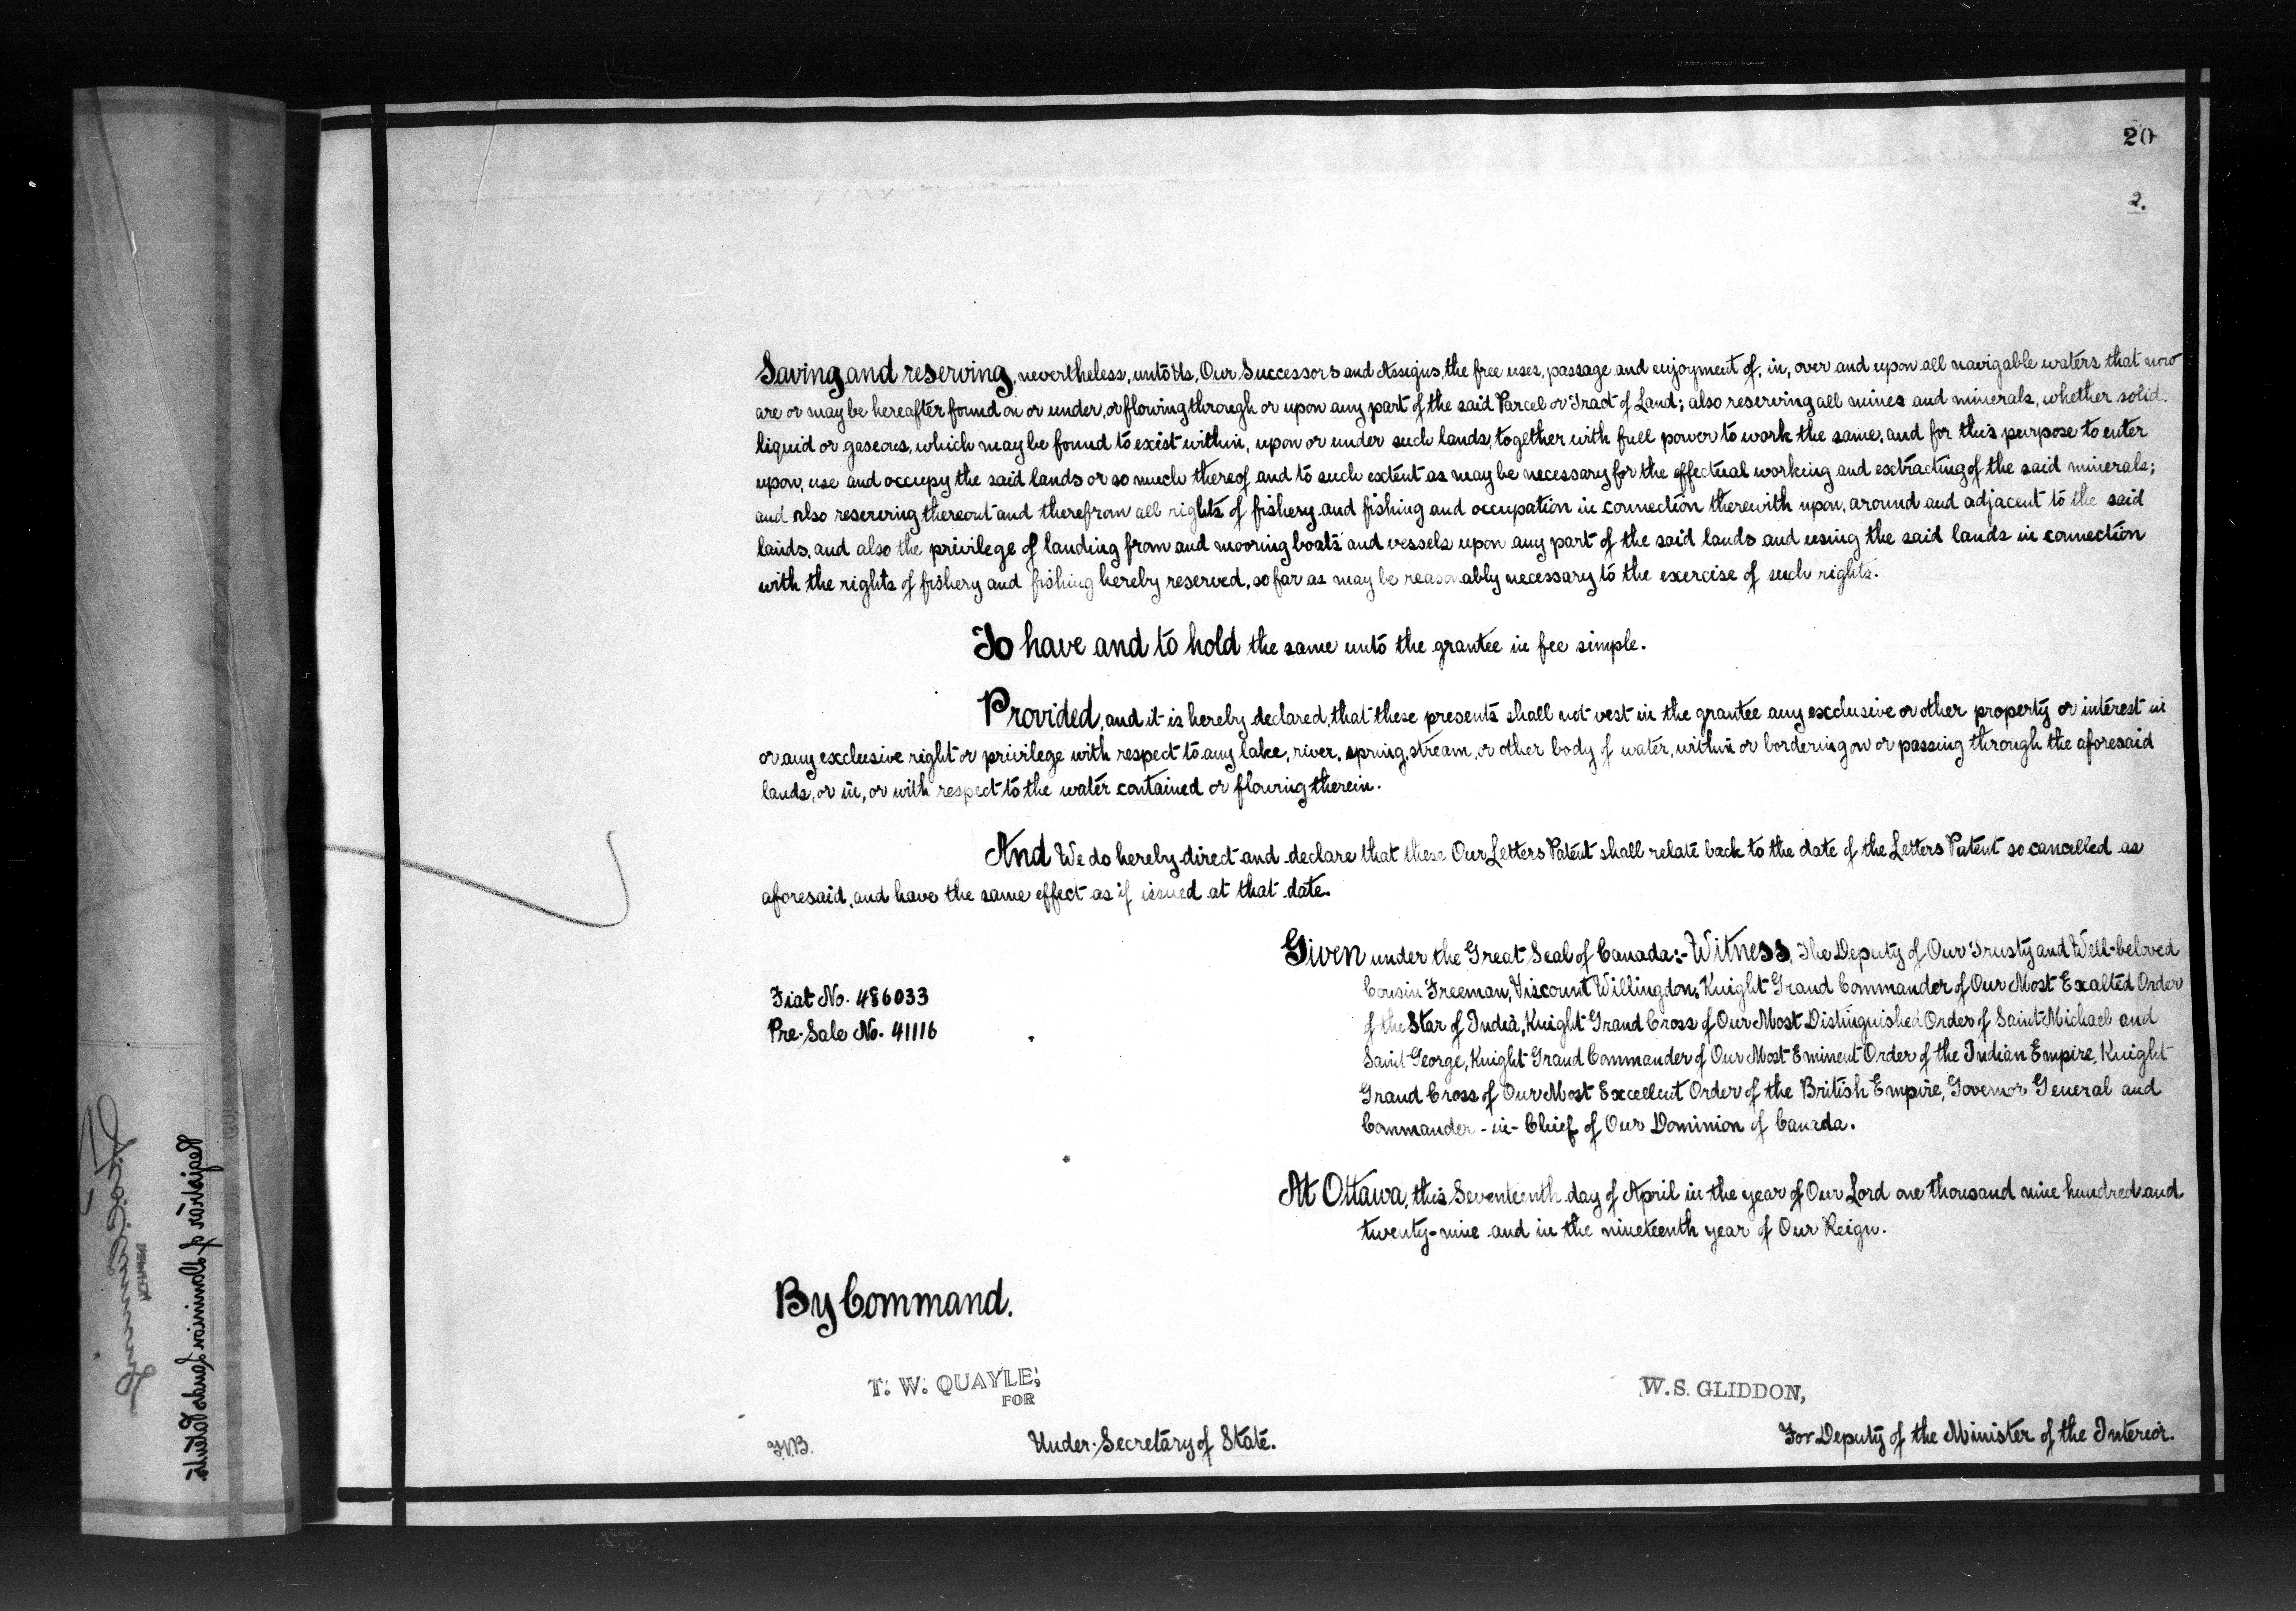 20
2.
Saving and reserving, nevertheless, unto Us, Our Successors and Assigns, the free uses, passage and enjoyment of, in, over and upon all navigable waters that now
are or may be hereafter found on or under, or flowing through or upon any part of the said Parcel or Tract of Land; also reserving all mines and minerals, whether solid,
liquid or gaseous, which may be found to exist within, upon or under such lands, together with full power to work the same, and for this purpose to enter
upon, use and occupy the said lands or so much thereof and to such extent as may be necessary for the effectual working and extracting of the said minerals;
and also reserving thereout and therefrom all rights of fishery and fishing and occupation in connection therewith upon, around and adjacent to the said
lands, and also the privilege of landing from and mooring boats and vessels upon any part of the said lands and using the said lands in connection
with the rights of fishery and fishing hereby reserved, so far as may be reasonably necessary to the exercise of such rights.
To have and to hold the same unto the grantee in fee simple.
Provided, and it is hereby declared, that these presents shall not vest in the grantee any exclusive or other property or interest in
or any exclusive right or privilege with respect to any lake, river, spring, stream, or other body of water, within or bordering on or passing through the aforesaid
lands, or in, or with respect to the water contained or flowing therein.
And We do hereby direct and declare that these Our Letters Patent shall relate back to the date of the Letters Patent so cancelled as
aforesaid, and have the same effect as if issued at that date.
Given under the Great Seal of Canada:- Witness, The Deputy of Our Trusty and Well-beloved
Cousin Freeman, Viscount Willingdon, Knight Grand Commander of Our Most Exalted Order
of the Star of India, Knight Grand Cross of Our Most Distinguished Order of Saint Michael and
Saint George, Knight Grand Commander of Our Most Eminent Order of the Indian Empire, Knight
Grand Cross of Our Most Excellent Order of the British Empire, Governor General and
Commander-in-Chief of Our Dominion of Canada.
Fiat No. 486033
Pre-Sale No. 41116
At Ottawa, this Seventeenth day of April in the year of Our Lord one thousand nine hundred and
twenty-nine and in the nineteenth year of Our Reign.
By Command.
T. W. QUAYLE,
FOR
Under-Secretary of State.
W. S. GLIDDON,
For Deputy of the Minister of the Interior.
Registrar of Dominion Lands Patents.